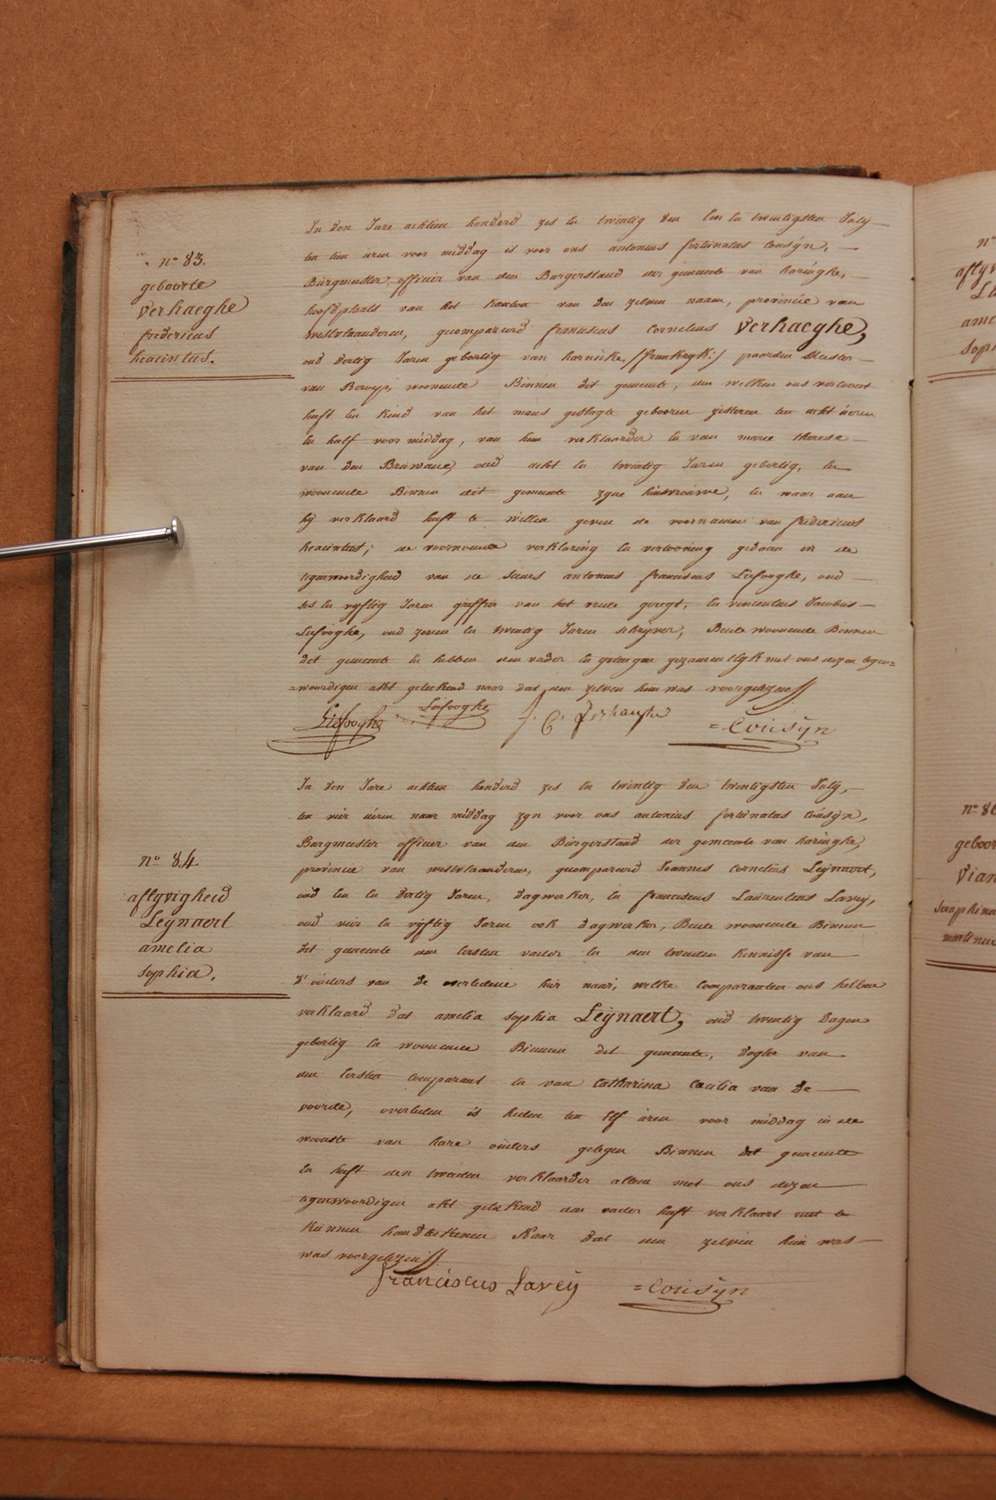 n.° 83.
geboorte
Verhaeghe
fredericus
hiacintus.
In den Jare achtien honderd zes en twintig den een en twintigsten July
ten tien uren voor middag is voor ons antonius fortunatus Cousÿn,
Burgmeester, officier van den Borgerstand der gemeente van haringhe,
hoofdplaats van het kanton van den zelven naam, provincie van
westvlaanderen, gecompareerd franciscus Cornelius Verhaeghe,
oud dertig Jaren geboortig van /frankryk:/ paorden Meester
van woonende Binnen det gemeente, den welken ons vertoont
heeft een kind van het mans geslagte gebooren gisteren ten acht uren
en half voor middag, van hem verklaarder en van marie therese
van den oud acht en twintig Jaren geboortig, en
woonende Binnen det gemeente zyne huisvrouwe, en waar aan
hy verklaard heeft te willen geven de voornamen van fredericus
hiacintus; de voornoemde verklaring en vertooning gedaen in de
tegenwoordigheid van de Sieurs antonius franciscus Liefooghe, oud
ses en vyftig Jaren greffier van het vrede geregt, en vincentius Jacobus
Liefooghe, oud zeven en twintig Jaren schryver, Beide woonende Binnen
det gemeente en hebben den vader en getuigen gezamentlyk met ons dezen tegen=
=woordigen akt geteekend naer dat den zelven hun was voorgelezen
Liefooghe Liefooghe f. C. Verhaeghe =Cousÿn
In den Jare achtien honderd zes en twintig den twintigsten July,
ten vier uren naer middag zyn voor ons antonius fortunatus Cousÿn,
Burgmeester officier van den Burgerstand der gemeente van haringhe,
provincie van westvlaanderen, gecompareerd Joannes Cornelius Leÿnaert,
oud een en dertig Jaren, dagwerker, en franciscus Laurentius Lavey,
oud vier en vyftig Jaren ook dagwerker, Beide woonende Binnen
det gemeente den eersten vader en den tweeden kennisse van
d'ouders van de overledene hier naer, welke comparanten ons hebben
verklaard dat amelia sophia Leÿnaert, oud twintig dagen
geboortig en woonende Binnen det gemeente, dogter van
den eersten comparant en van Catharina Cecilia van de
voorde, overleden is heden ten elf uren voor middag in de
woonste van hare ouders gelegen Binnen det gemeente
en heeft den tweeden verklaarder alleen met ons dezen
tegenwoordigen akt geteekend den vader heeft verklaart niet te
kunnen handteekenen Naar dat den zelven hun was
was voorgelezen
franciscus Lavey =Cousÿn
n.° 84
aflyvigheid
Leÿnaert
amelia
sophia.